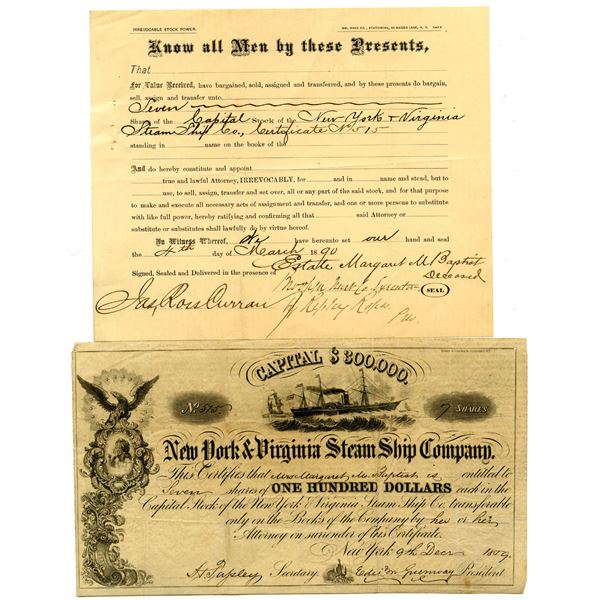 IRREVOCABLE STOCK POWER.
Know all Men by these Presents,
That
For Value Received, have bargained, sold, assigned and transferred, and by these presents do bargain,
sell, assign and transfer unto
Seven
Share of the Capital Stock of the New York & Virginia
Steam Ship Co., Certificate No 515
standing in name on the books of the
And do hereby constitute and appoint
true and lawful Attorney, IRREVOCABLY, for and in name and stead, but to
use, to sell, assign, transfer and set over, all or any part of the said stock, and for that purpose
to make and execute all necessary acts of assignment and transfer, and one or more persons to substitute
with like full power, hereby ratifying and confirming all that said Attorney or
substitute or substitutes shall lawfully do by virtue hereof.
In Witness Whereof, We have hereunto set our hand and seal
the 4th day of March 1890
Estate Margaret M. Baptist
Deceased
Signed, Sealed and Delivered in the presence of
Executor
SEAL
Jas Ross Curran
Ripley
CAPITAL $300,000.
No. 515
7 SHARES
New York & Virginia Steam Ship Company.
This Certifies that Mrs Margaret M. Baptist is entitled to
Seven shares of ONE HUNDRED DOLLARS each in the
Capital Stock of the New York & Virginia Steam Ship Co. transferable
only on the Books of the Company by her or her
Attorney on surrender of this Certificate.
New York 9th Decr 1859
Tapsley Secretary. President